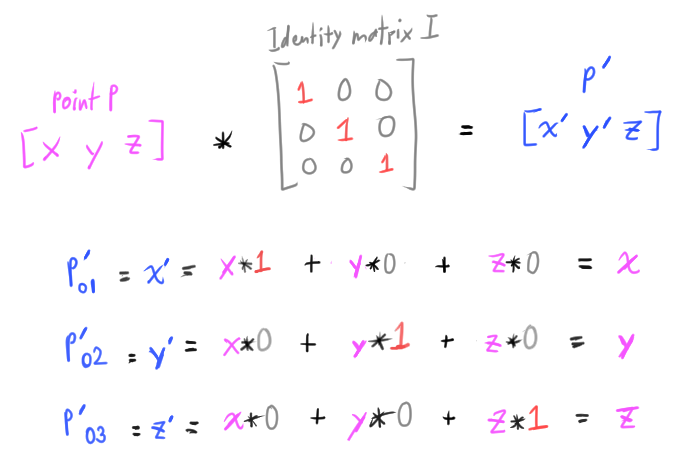 Identity matrix I
point P
P'
[x y z] * [1 0 0
0 1 0
0 0 1] = [x' y' z]
P'01 = x' = x*1 + y*0 + z*0 = x
P'02 = y' = x*0 + y*1 + z*0 = y
P'03 = z' = x*0 + y*0 + z*1 = z